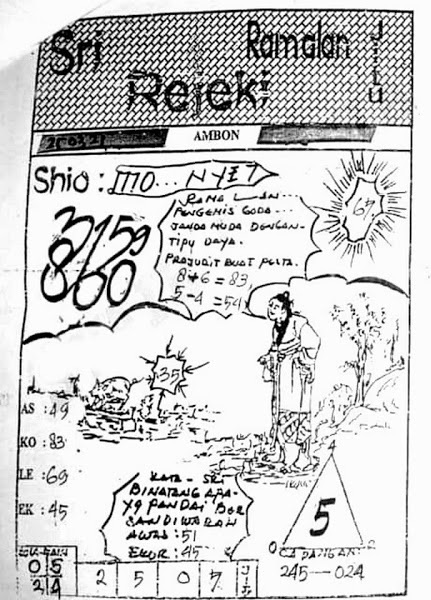 Sri
Ramalan
Rejeki
Jitu
AMBON
Shio : MO... NYET
3159
860
RAMALAN...
PENGEMIS GODA...
JANDA MUDA DENGAN-
TIPU DAYA.
PRAJURIT BUAT PESTA.
8+6 = 83,
5-4 = 54
35
AS : 49
KO : 83
LE : 69
EK : 45
KATA - SRI
BINATANG APA-
YG PANDAI BER
SANDIWARAH
AWAS : 51
EKOR : 45
5
0
2
CADANGAN
245 — 024
0 5
2 4
2 5 0 7